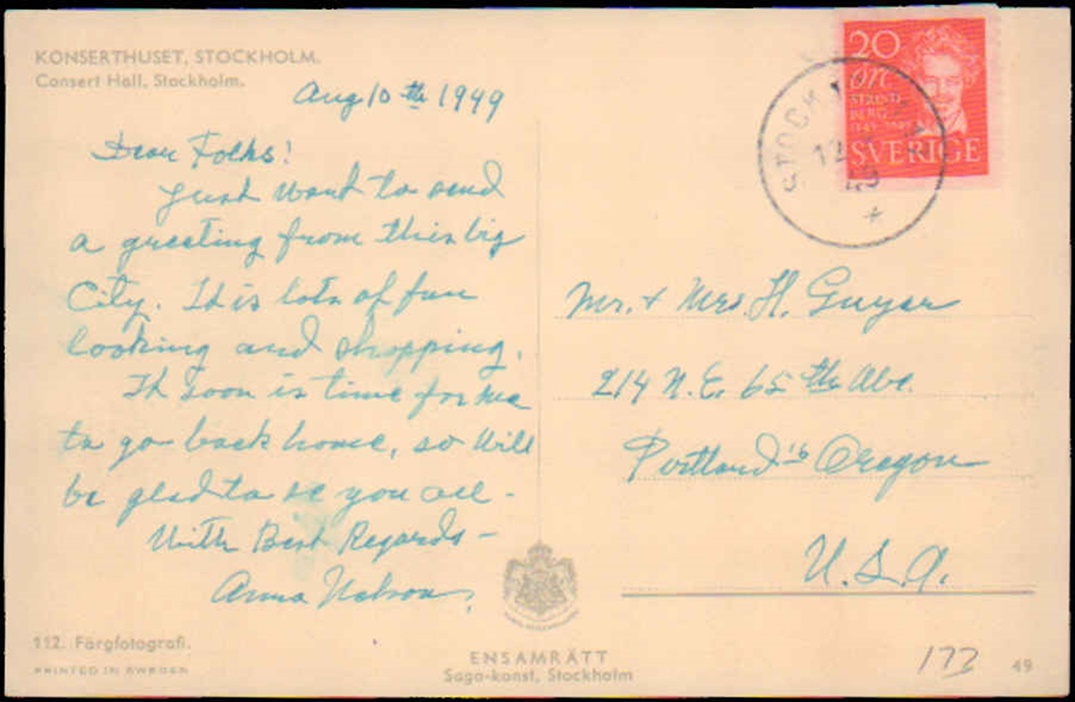 KONSERTHUSET, STOCKHOLM.
Consert Hall, Stockholm.
Aug 10th 1949
Dear Folks!
Just want to send
a greeting from this big
City. It is lots of fun
looking and shopping.
It soon is time for me
to go back home, so will
be glad to se you all -
With Best Regards -
Anna Nelson.
112. Färgfotografi.
PRINTED IN SWEDEN
ENSAMRÄTT
Saga-konst, Stockholm
20
öre
STRIND
BERG
SVERIGE
STOCK
49
Mr. + Mrs. H. Guyer
214 N.E. 65th Ave.
Portland 16 Oregon
U.S.A.
173
49